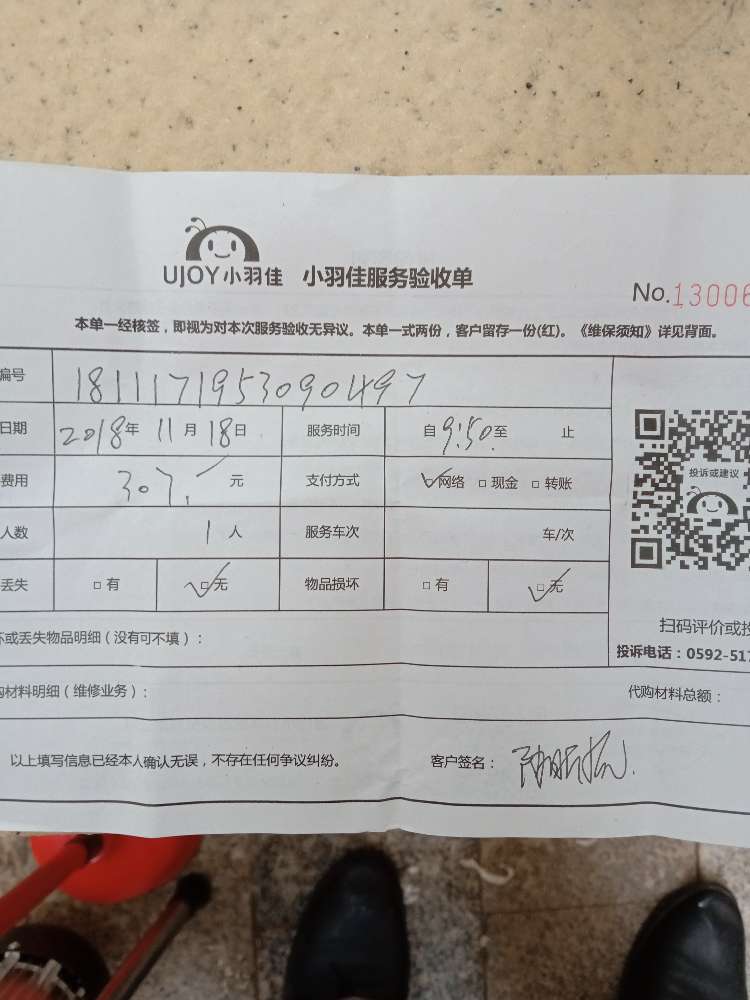 UJOY小羽佳 小羽佳服务验收单
No.13006
本单一经核签，即视为对本次服务验收无异议。本单一式两份，客户留存一份(红)。《维保须知》详见背面。
编号 181117195309 01497
日期 2018年 11月 18日 服务时间 自9:50至 止
费用 307.- 元 支付方式 网络 现金 转账
人数 1人 服务车次 车/次
丢失 有 无 物品损坏 有 无
投诉或建议
扫码评价或投
投诉电话：0592-517
坏或丢失物品明细（没有可不填）：
购材料明细（维修业务）： 代购材料总额：
以上填写信息已经本人确认无误，不存在任何争议纠纷。 客户签名：